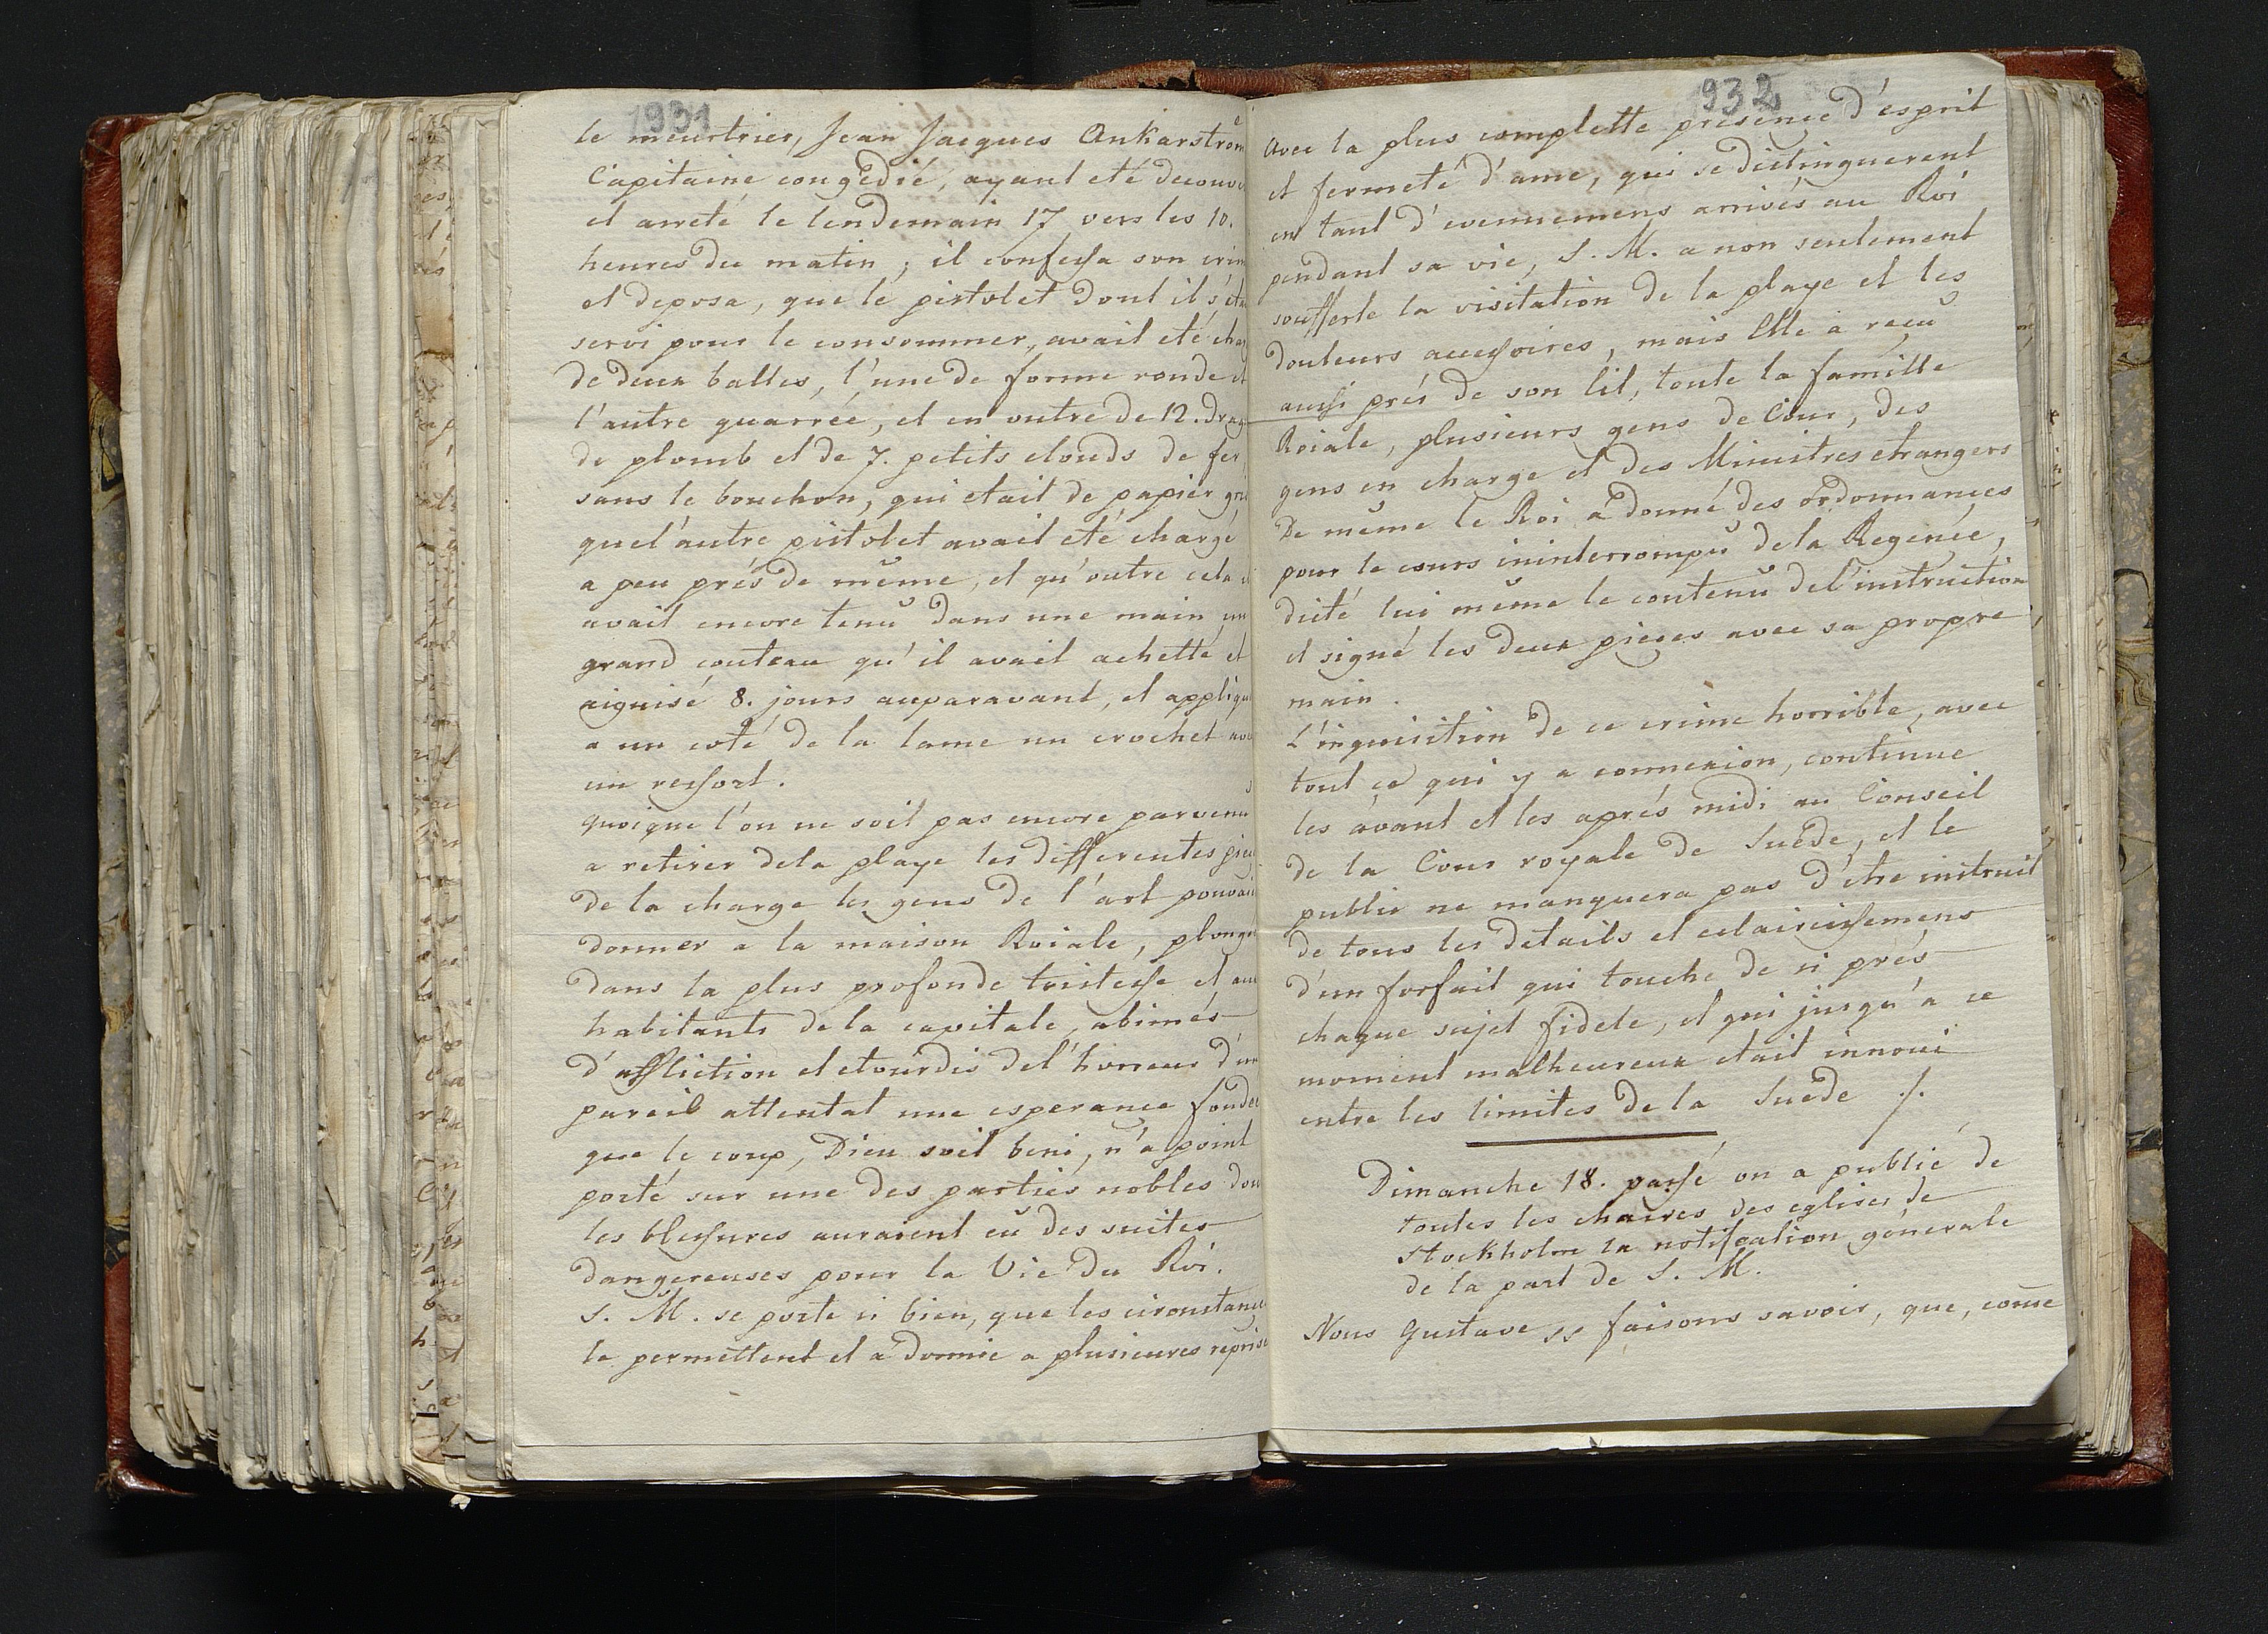 1931
le meurtrier, Jean Jacques Ankarström
Capitaine congédié, ayant eté decouve
et arreté le lendemain 17 vers les 10.
heures du matin; il confessa son crim
et deposa, que le pistolet dont il s'eta
servi pour le consommer, avait eté char
de deux balles, l'une de forme ronde et
l'autre quarrée, et en outre de 12. drag
de plomb et de 7. petits clouds de fer,
sans le bouchon, qui etait de papier gris
que l'autre pistolet avait eté chargé
a peu prés de même, et qu'outre cela il
avait encore tenû dans une main un
grand couteau qu'il avait achetté et
aiguisé 8. jours auparavant, et appliqu
a un coté de la lame un crochet ave
un ressort.
quoique l'on ne soit pas encore parvenu
a retirer dela playe les differentes piec
de la charge les gens de l'art pouvai
donner a la maison Roiale, plongé
dans la plus profonde tristesse et aux
habitants de la capitale, abimés
d'affliction et etourdis del'horreur d'un
pareil attentat une esperance fondé
que le coup, Dieu soit beni, n'a point
porté sur une des parties nobles don
les blessures auraient eû des suites
dangereuses pour la Vie du Roi.
S. M. se porte si bien, que les cironstance
le permettent et a donnie a plusieures reprise
932
Avec la plus complette presence d'esprit
et fermeté d'ame, qui se distinguerent
en tant d'evennemens arrivés au Roi
pendant sa vie, S. M. a non seulement
soufferte la visitation de la playe et les
douleurs accessoires, mais Elle a reçu
aussi prés de son lit, toute la famille
Roiale, plusieurs gens de Cour, des
gens en charge et des Ministres etrangers
De même le Roi a donné des ordonnances
pour le cours ininterrompû dela Regence,
dicté lui même le contenû del'instruction
et signé les deux pieces avec sa propre
main.
L'inquisition de ce crime horrible, avec
tout ce qui y a connexion, continue
les avant et les aprés midi au Conseil
de la Cour royale de Suède, et le
public ne manquera pas d'etre instruit
de tous les details et eclaircissemens
d'un forfait qui touche de si prés
chaque sujet fidele, et qui jusqu'a ce
moment malheureux etait innoui
entre les limites de la Suede ./.
Dimanche 18. passé on a publié de
toutes les chaires des eglises de
Stockholm la notification génerale
de la part de S. M.
Nous Gustave ss faisons savoir, que, com̄e